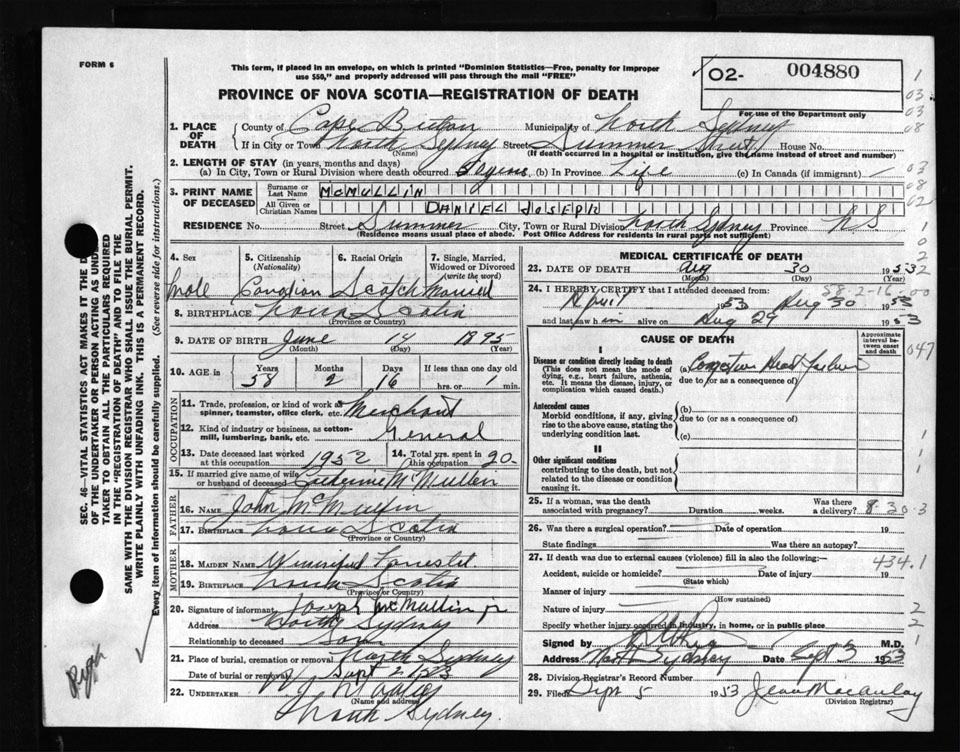 FORM 6
This form, if placed in an envelope, on which is printed "Dominion Statistics—Free, penalty for improper
use $50," and properly addressed will pass through the mail "FREE"
02- 004880
For use of the Department only
PROVINCE OF NOVA SCOTIA—REGISTRATION OF DEATH
1. PLACE OF DEATH
County of Cape Breton Municipality of North Sydney
If in City or Town North Sydney Street Summer Street House No.
(Name) (If death occurred in a hospital or institution, give the name instead of street and number)
2. LENGTH OF STAY (in years, months and days)
(a) In City, Town or Rural Division where death occurred (b) In Province Life (c) In Canada (if immigrant)
3. PRINT NAME OF DECEASED
Surname or Last Name MCMULLIN
All Given or Christian Names DANIEL JOSEPH
RESIDENCE No. Street Summer City, Town or Rural Division North Sydney Province N S
(Residence means usual place of abode. Post Office Address for residents in rural parts not sufficient)
4. Sex Male
5. Citizenship (Nationality) Canadian
6. Racial Origin Scotch
7. Single, Married, Widowed or Divorced (write the word) Married
8. BIRTHPLACE Nova Scotia
(Province or Country)
9. DATE OF BIRTH June 14 1895
(Month) (Day) (Year)
10. AGE in Years 58 Months 2 Days 16 If less than one day old hrs. or min.
OCCUPATION
11. Trade, profession, or kind of work as spinner, teamster, office clerk, etc. Merchant
12. Kind of industry or business, as cotton-mill, lumbering, bank, etc. General
13. Date deceased last worked at this occupation 1952
14. Total yrs. spent in this occupation 20
15. If married give name of wife or husband of deceased Catherine McMullin
FATHER
16. NAME John McMullin
17. BIRTHPLACE Nova Scotia
(Province or Country)
MOTHER
18. MAIDEN NAME Winnifred Forrestel
19. BIRTHPLACE Nova Scotia
(Province or Country)
20. Signature of informant Joseph McMullin jr
Address North Sydney
Relationship to deceased Son
21. Place of burial, cremation or removal North Sydney
Date of burial or removal Sept 2 1953
22. UNDERTAKER
(Name and address)
North Sydney
MEDICAL CERTIFICATE OF DEATH
23. DATE OF DEATH Aug 30 1953
(Month) (Day) (Year)
24. I HEREBY CERTIFY that I attended deceased from: 58-2-16-00
April 1953 Aug 30 1953
and last saw him alive on Aug 29 1953
CAUSE OF DEATH
Approximate interval between onset and death
I
Disease or condition directly leading to death
(This does not mean the mode of dying, e.g., heart failure, asthenia, etc. It means the disease, injury, or complication which caused death.)
(a) Congestive Heart Failure
due to (or as a consequence of)
Antecedent causes
Morbid conditions, if any, giving rise to the above cause, stating the underlying condition last.
(b)
due to (or as a consequence of)
(c)
II
Other significant conditions
contributing to the death, but not related to the disease or condition causing it.
25. If a woman, was the death associated with pregnancy? Duration weeks. Was there a delivery? 8 30-3
26. Was there a surgical operation? Date of operation 19
State findings Was there an autopsy?
27. If death was due to external causes (violence) fill in also the following:— 434.1
Accident, suicide or homicide? Date of injury 19
(State which)
Manner of injury
(How sustained)
Nature of injury
Specify whether injury occurred in industry, in home, or in public place
Signed by M.D.
Address North Sydney Date Sept 3 1953
28. Division Registrar's Record Number
29. Filed Sept 5 1953 Jean Macaulay
(Division Registrar)
SEC. 46—VITAL STATISTICS ACT MAKES IT THE D
OF THE UNDERTAKER OR PERSON ACTING AS UND
TAKER TO OBTAIN ALL THE PARTICULARS REQUIRED
IN THE "REGISTRATION OF DEATH" AND TO FILE THE
SAME WITH THE DIVISION REGISTRAR WHO SHALL ISSUE THE BURIAL PERMIT.
WRITE PLAINLY WITH UNFADING INK. THIS IS A PERMANENT RECORD.
Every item of information should be carefully supplied. (See reverse side for instructions.)
1
03
03
08
03
08
02
1
0
2
2
047
1
1
1
2
2
1